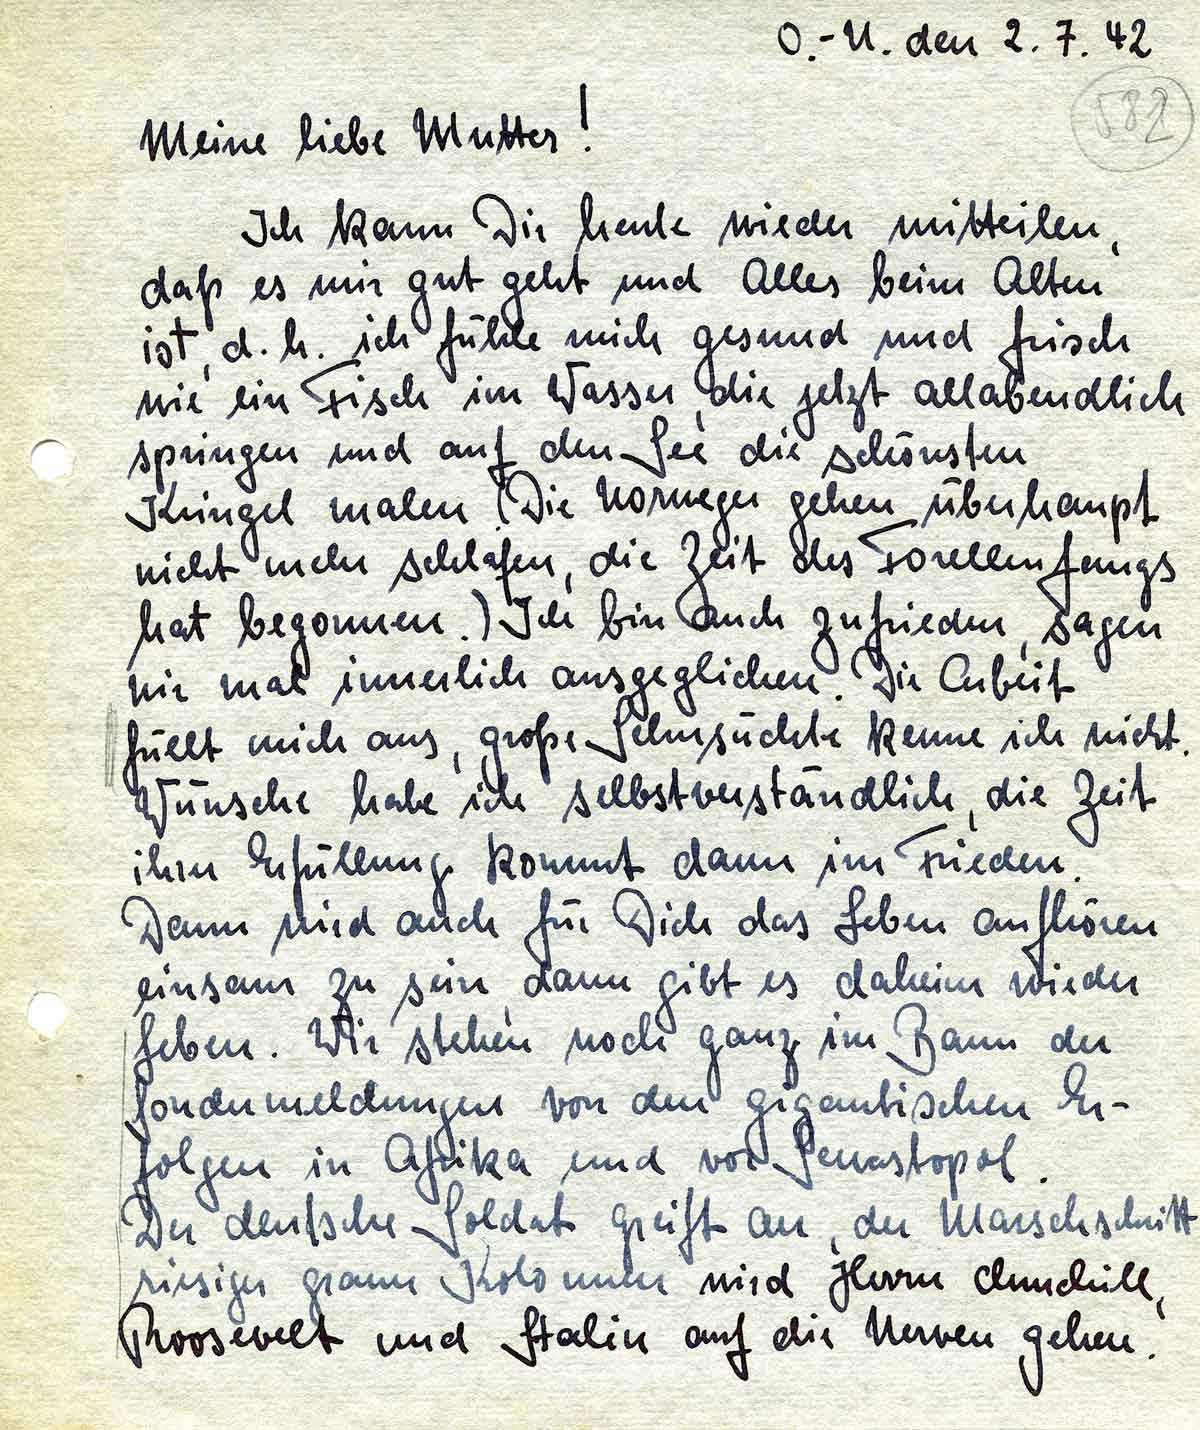 O.-U. den 2.7.42
582
Meine liebe Mutter!
Ich kann Dir heute wieder mitteilen,
daß es mir gut geht und Alles beim Alten
ist, d.h. ich fühle mich gesund und frisch
wie ein Fisch im Wasser, die jetzt allabendlich
springen und auf den See die schönsten
Kringel malen. (Die Norweger gehen überhaupt
nicht mehr schlafen, die Zeit des Forellenfangs
hat begonnen.) Ich bin auch zufrieden, sagen
wir mal innerlich ausgeglichen. Die Arbeit
füllt mich aus, große Sehnsüchte kenne ich nicht.
Wünsche habe ich selbstverständlich, die Zeit
ihrer Erfüllung kommt dann im Frieden.
Dann wird auch für Dich das Leben aufhören
einsam zu sein, dann gibt es daheim wieder
Leben. Wir stehen noch ganz im Bann der
Sondermeldungen von den gigantischen Er-
folgen in Afrika und vor Sewastopol.
Der deutsche Soldat greift an, der Marschschritt
riesiger grauer Kolonnen wird Herrn Churchill,
Roosevelt und Stalin auf die Nerven gehen.